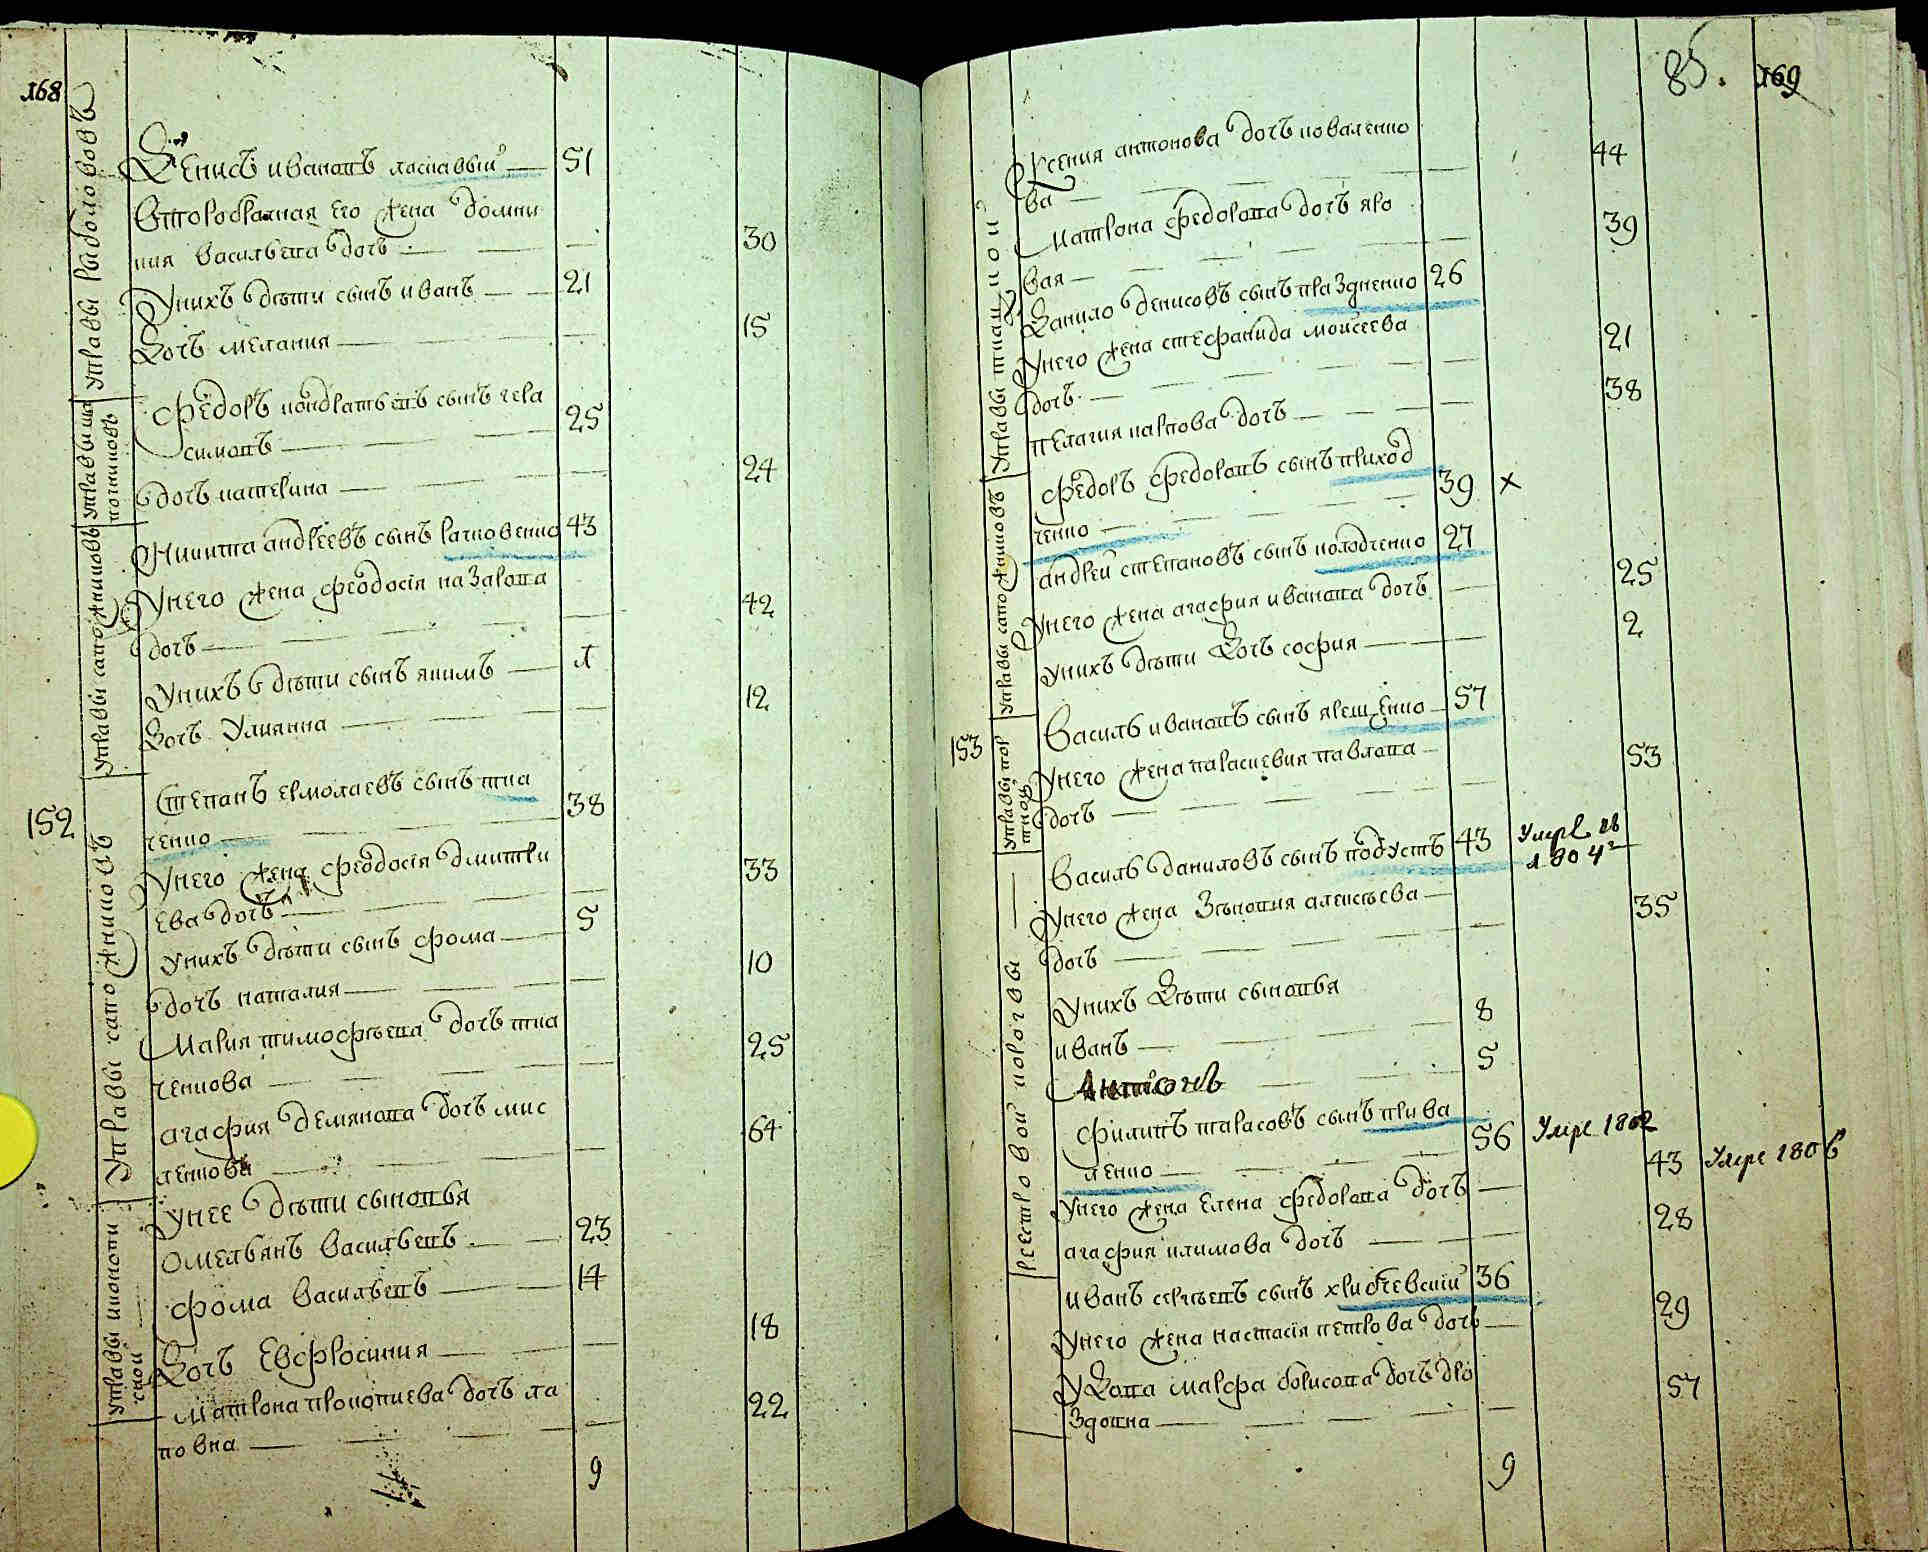 168
управы рыболововъ
Денисъ ивановъ ласкавый 51
второбрачная его жена домни
кия васильева дочъ 30
Унихъ дѣти сынъ иванъ 21
Дочъ мелания 15
Федоръ кондратьевъ сынъ гера
симовъ 25
дочъ катерина 24
управы сапожниковъ
Никита андреевъ сынъ рачковенко 43
Унего жена феодосія назарова
дочъ 42
Унихъ дѣти сынъ якимъ 1
Дочъ Улиянна 12
152
Управы сапожниковъ
Степанъ ермолаевъ сынъ тка
ченко 38
Унего жена феодосія дмитри
ева дочъ 33
унихъ дѣти сынъ фома 5
дочъ наталия 10
Мария тимофѣева дочъ тка
ченкова 25
агафия демянова дочъ мис
ленкова 64
Унее дѣти сыновья
омельянъ васильевъ 23
фома васильевъ 14
Дочъ Евфросиния 18
управы иконопи
сной
Матрона прокопиева дочъ ла
повна 22
9
85. 169
Ксения антонова дочъ коваленко
ва 44
управы ткацкой
Матрона федорова дочъ яро
вая 39
Данило денисовъ сынъ праздненко 26
Унего жена стефанида моисеева
дочъ 21
пелагия карпова дочъ 38
управы сапожниковъ
Федоръ федоровъ сынъ приход
ченко 39 х
андрей степановъ сынъ колодченко 27
Унего жена агафия иванова дочъ 25
унихъ дѣти Дочъ софия 2
153
управы пор
тной
Василь ивановъ сынъ ярещенко 57
Унего жена параскевия павлова
дочъ 53
реестровой корогвы
Василь даниловъ сынъ кобустъ 43 Умре в
1804г
Унего жена Зѣновия алексѣева
дочъ 35
Унихъ Дѣти сыновья
иванъ 8
Антонъ 5
филипъ тарасовъ сынъ прива
ленко 56 Умре 1802
Унего жена елена федорова дочъ 43 Умре 1806
агафия климова дочъ 28
иванъ сергѣевъ сынъ хрибчевский 36
Унего жена настасія петрова дочъ 29
Удова марфа борисова дочъ дро
здовна 57
9